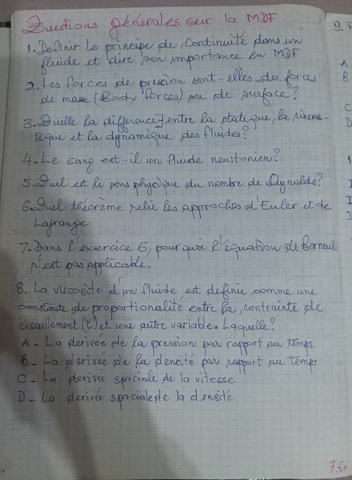 Questions générales sur la MDF
1. Definir le principe de continuité dans un
fluide et dire son importance en MDF
2. Les forces de pression sont-elles des forces
de masse (Body forces) ou de surface?
3. Quelle la différence entre la statique, la ciném-
tique et la dynamique des fluides?
4. Le sang est-il un fluide newtonien?
5. Quel est le sens physique du nombre de Reynolds?
6. Quel théorème relie les approches d'Euler et de
Lagrange
7. Dans l'exercice 6, pourquoi l'équation de Bernoulli
n'est pas applicable.
8. La viscosité d'un fluide est definie comme une
constante de proportionalité entre la contrainte de
cisaillement (τ) et une autre variable. Laquelle?
A - La derivée de la pression par rapport au temps
B - La derivée de la densité par rapport au temps
C - La derivée spaciale de la vitesse
D - La derivé spaciale de la densité
9.
A
B